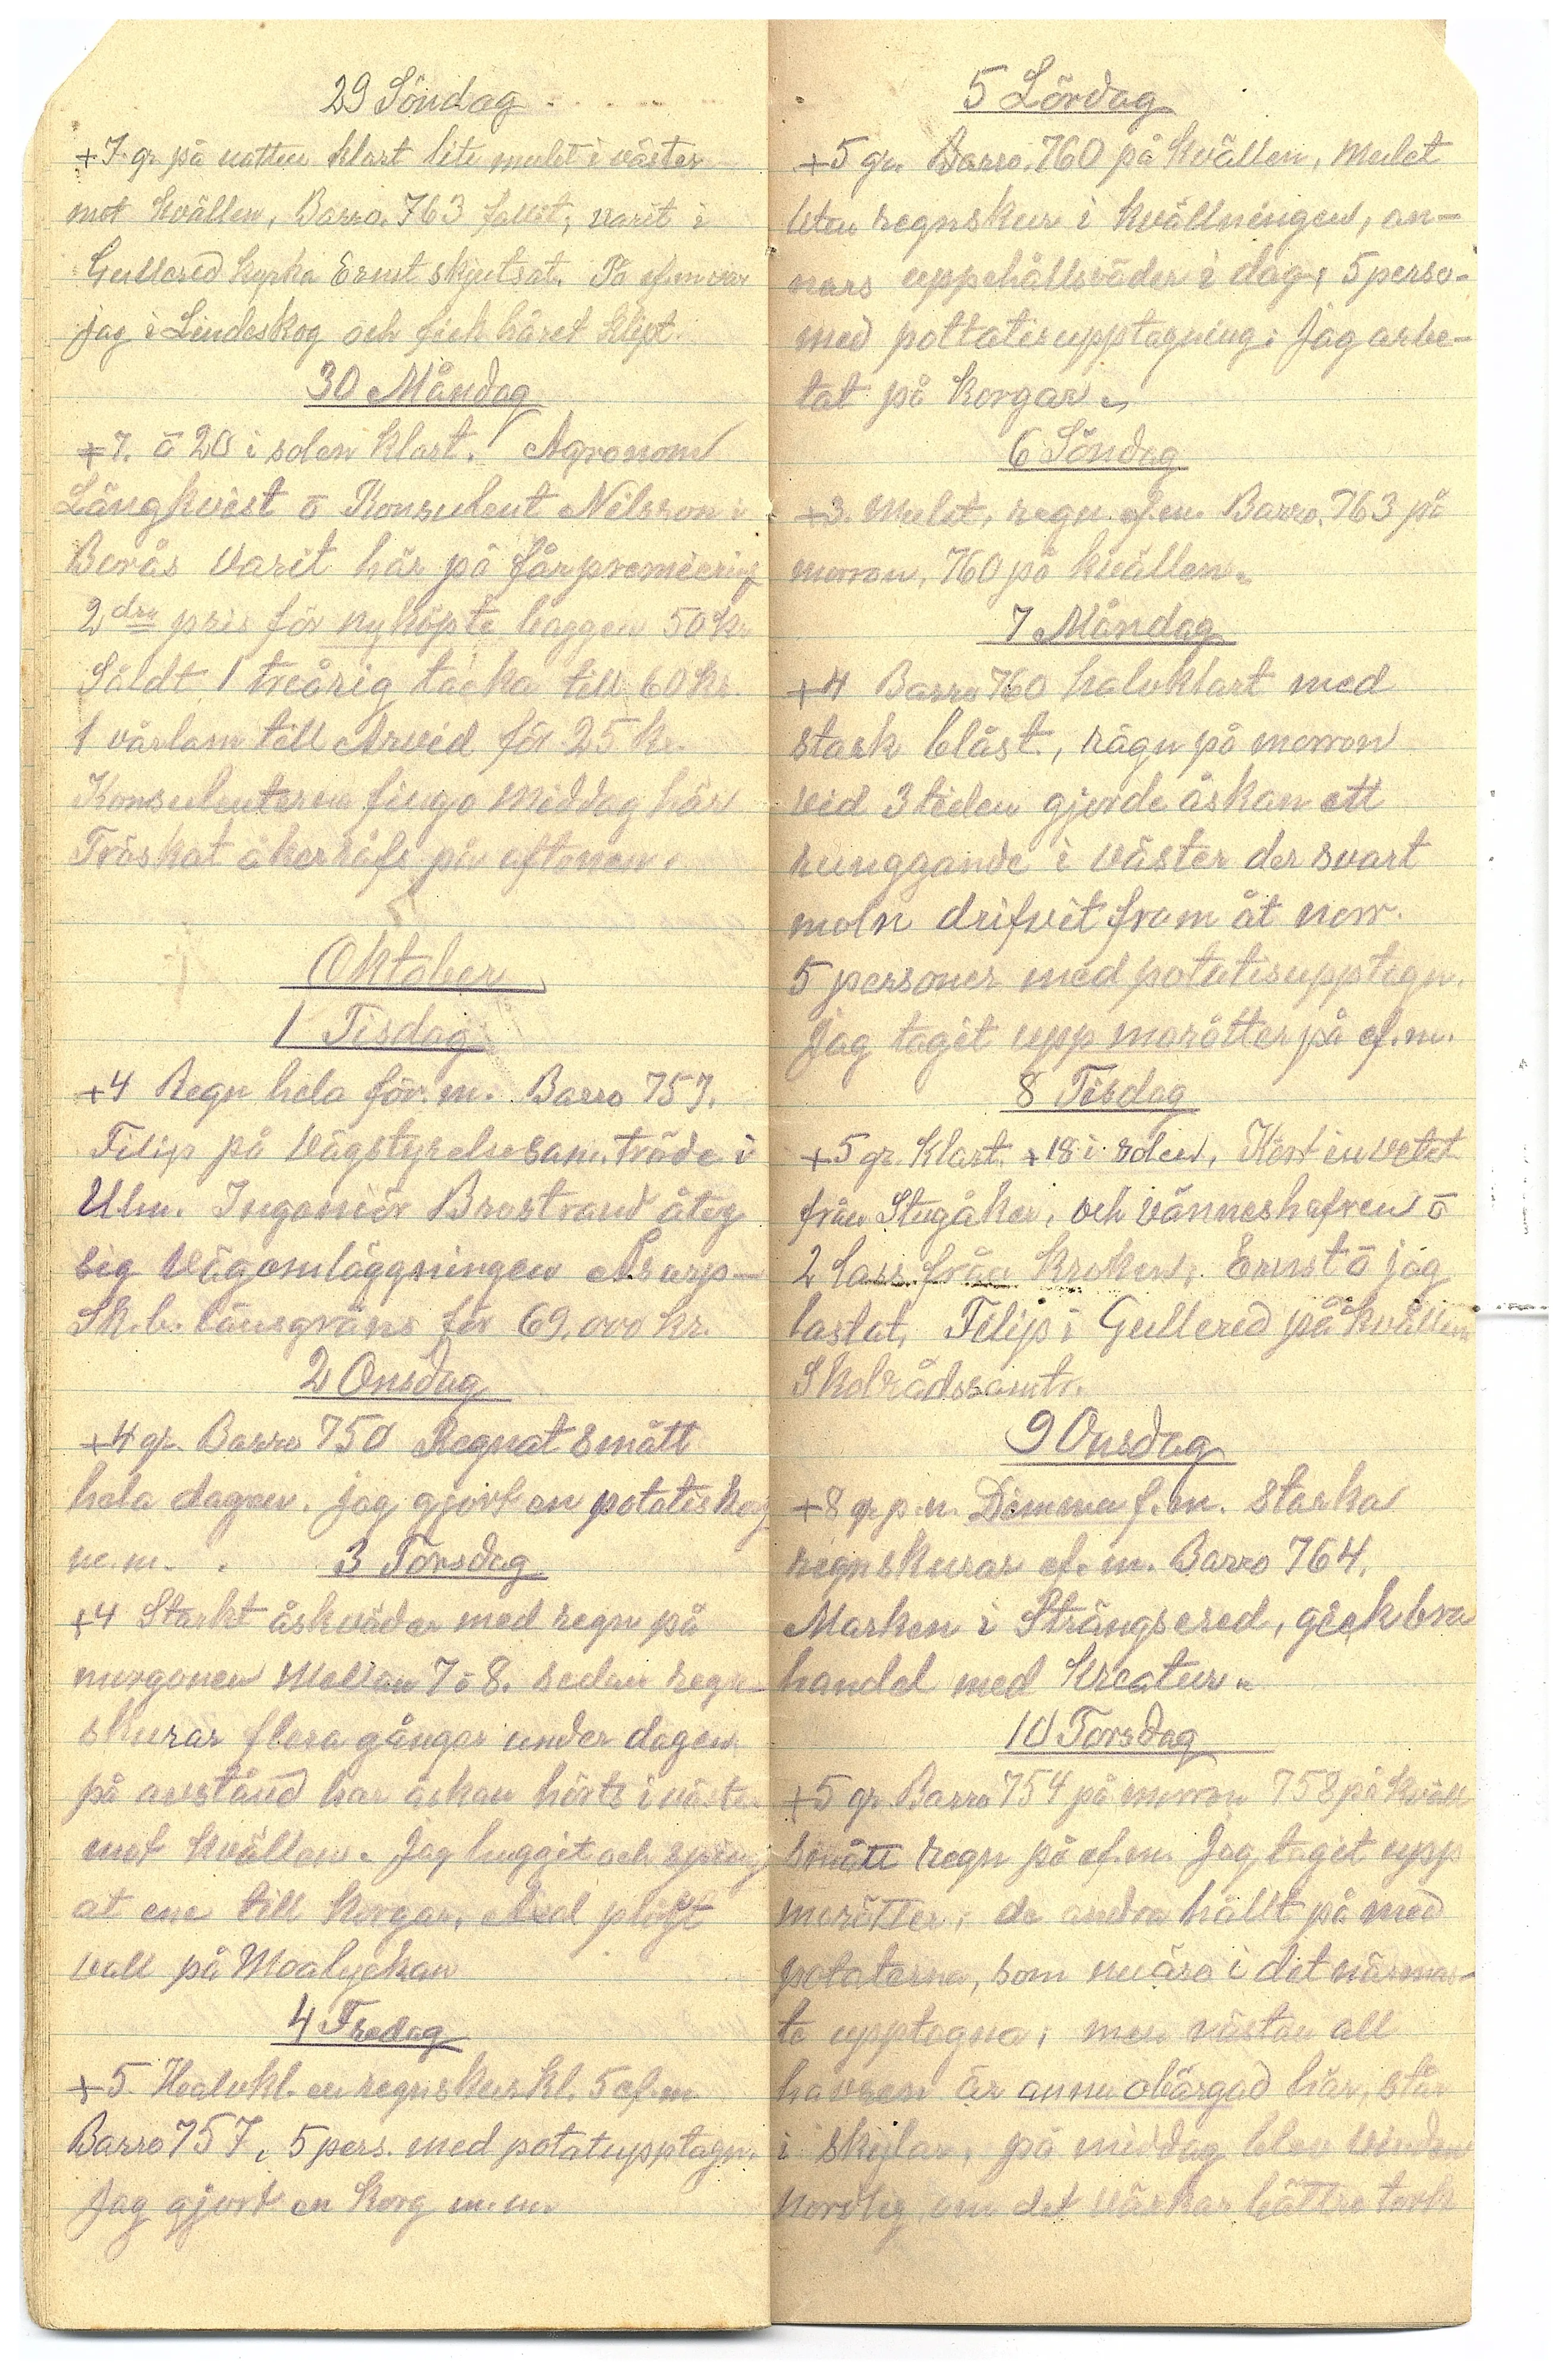 29 Söndag
+7. gr. på natten klart lite mulet i väster
mot kvällen, Barro. 763 fallit, varit i
Gullered kyrka Ernst skjutsat. På ef.m var
jag i Lindeskog och fick håret klipt
30 Måndag
+7. ō 20 i solen klart. Agronom
Långkvist ō Konsulent Nilsson i
Borås varit här på fårpremiering
2dra pris för nyköpte baggen 50 kr
Såldt 1 treårig tacka till 60 kr.
1 vårlam till Arvid för 25 kr.
Konsulenterna fingo middag här
Tröskat åkerräfs på aftonen.
Oktober
1 Tisdag
+4 Regn hela för.m. Barro 757.
Filip på Vägstyrelsesam.träde i
Ulm. Ingeniör Brostrand åtog
sig Vägomläggningen Åsarp-
Sk.b. länsgräns för 69.000 kr.
2 Onsdag
+4 gr. Barro 750 Regnat smått
hela dagen. jag gjort en potatiskorg
m.m. . 3 Torsdag
+4 Starkt åskväder med regn på
morgonen Mellan 7 ō 8. sedan regn-
skurar flera gånger under dagen
på avstånd har åskan hörts i väster
mot kvällen. Jag huggit och spräng
at ene till korgar, Axel plöjt
vall på Moalyckan
4 Fredag
+5 Halvkl. en regnskur kl. 5 ef.m
Barro 757, 5 pers. med potatupptagn.
Jag gjort en korg m.m
5 Lördag
+5 gr. Barro. 760 på kvällen, mulet
liten regnskur i kvällningen, an-
nars uppehållsväder i dag, 5 perso-
med pottatisupptagning. Jag arbe-
tat på korgar.
6 Söndag
+3. Mulet, regn ef.m. Barro. 763 på
morron, 760 på kvällen.
7 Måndag
+4 Barro 760 halvklart med
stark blåst, rägn på morron
vid 3 tiden gjorde åskan ett
runggande i väster der svart
moln drifvit fram åt norr.
5 personer med potatisupptagn.
Jag tagit upp morötter på ef.m.
8 Tisdag
+5 gr. Klart. +18 i solen, Kört in vetet
från Stugåker, och vänneshafren ō
2 lass från kroken, Ernst ō jag
lastat, Filip i Gullered på kvällen
Skolrådssamtr.
9 Onsdag
+8 gr p.n. Dimma f.m. starka
regnskurar ef.m. Barro 764.
Marken i Strängsered, gick bra
handel med kreatur.
10 Torsdag
+5 gr Barro 754 på morron 758 på kväll
smått regn på ef.m. Jag tagit upp
morötter, de andra hållt på med
potaterna, som nu äro i det närmas-
te upptagna, men nästan all
havren är annu obärgad här, står
i skylar, på middag blev vinden
Nordlig, om det väckar bättre tork